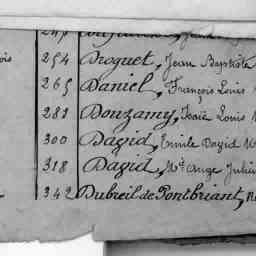 254 Droguet, Jean Baptiste
265 Daniel, François Louis
281 Donzamy, Isaïe Louis
300 Dazid, Emile Dazid
318 Dazid, Mie Ange Julien
342 Dubreil de Pontbriant,